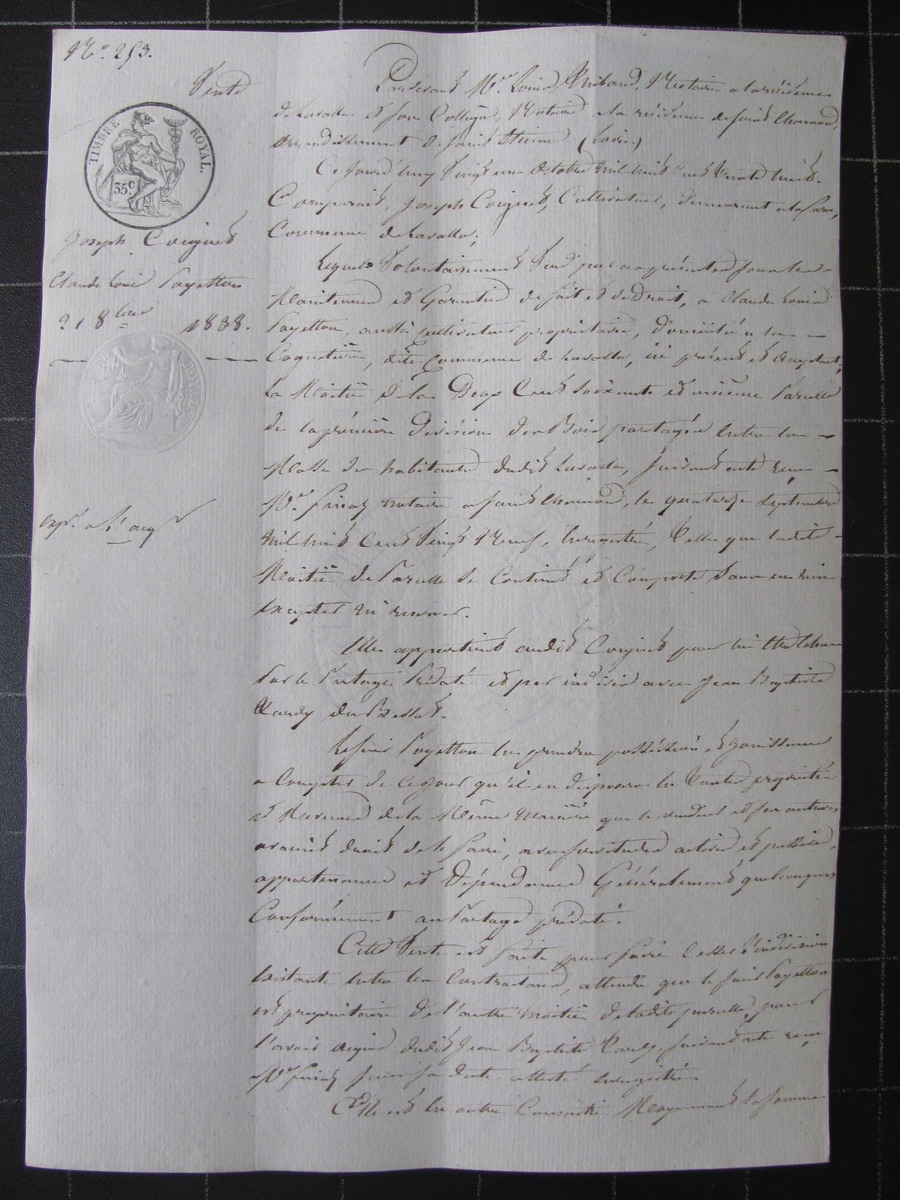 N.º 293.
Vente
TIMBRE ROYAL.
35 c
Joseph Coignet
Claude Louis Payetton
21 8bre 1838.
Pardevant M.e Louis Notaire à la résidence
de Lavalla et Jean Notaire à la résidence de Saint Chamond,
arrondissement de Saint Etienne (Loire)
Ce jourd'huy Vingt un Octobre mil huit cent trente huit.
Comparait, Joseph Coignet, Cultivateur, demeurant
Commune de Lavalla,
Lequel Volontairement Vend par ces présentes sous les
Maintenue et Garantie de fait et de droit, a Claude Louis
Payetton, aussi cultivateur propriétaire, domicilié a la
dite Commune de Lavalla, ici présent et acceptant,
la Moitié de la Deux Cent Soixante et onzième Parcelle
de la première division des Bois partagés entre la
Masse des habitants dudit Lavalla, suivant acte reçu
M.e Finaz notaire a Saint Chamond, le quatorze Septembre
mil huit Cent Vingt Neuf, Enregistré, telle que ladite
Moitié de Parcelle se Contient et Comporte Sans en rien
excepter ni réserver.
Elle appartient audit Coignet pour lui être échue
par le Partage Prédaté et par indivis avec Jean Baptiste
du Bessat.
Le sieur Payetton en prendra possession et jouissance
a Compter de ce jour qu'il en disposera en toute propriété
et Revenus de la Même manière que le vendeur et ses auteurs
avaient droit de le faire, avec servitudes actives et passives,
appartenances et Dépendances Généralement quelconques
Conformément au Partage prédaté.
Cette Vente est faite pour faire Cesser l'indivision
existante entre les Contractants, attendu que le sieur Payetton
est propriétaire de l'autre moitié de ladite parcelle, pour
l'avoir acquise dudit Jean Baptiste suivant acte reçu
M.e Finaz sous sa date attesté enregistré.
Elle est en outre Consentie Moyennant la somme